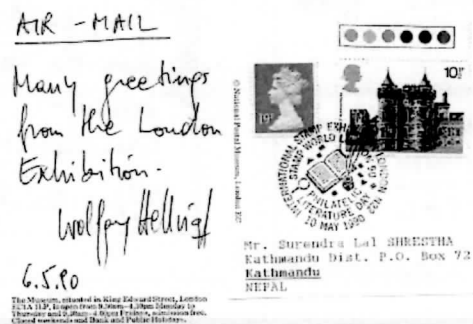 AIR-MAIL
Many greetings
from the London
Exhibition.
6.5.90
The Museum, situated in King Edward Street, London
EC1A 1LP, is open from 9.30am - 4.30pm Monday to
Thursday and 9.30am - 4.00pm Fridays, admission free.
Closed weekends and Bank and Public Holidays.
© National Postal Museum, London
19
10½P
INTERNATIONAL STAMP EXHIBITION
STAMP WORLD LONDON 90
PHILATELIC
LITERATURE DAY
10 MAY 1990
Mr. Surendra Lal SHRESTHA
Kathmandu Dist. P.O. Box 72
Kathmandu
NEPAL